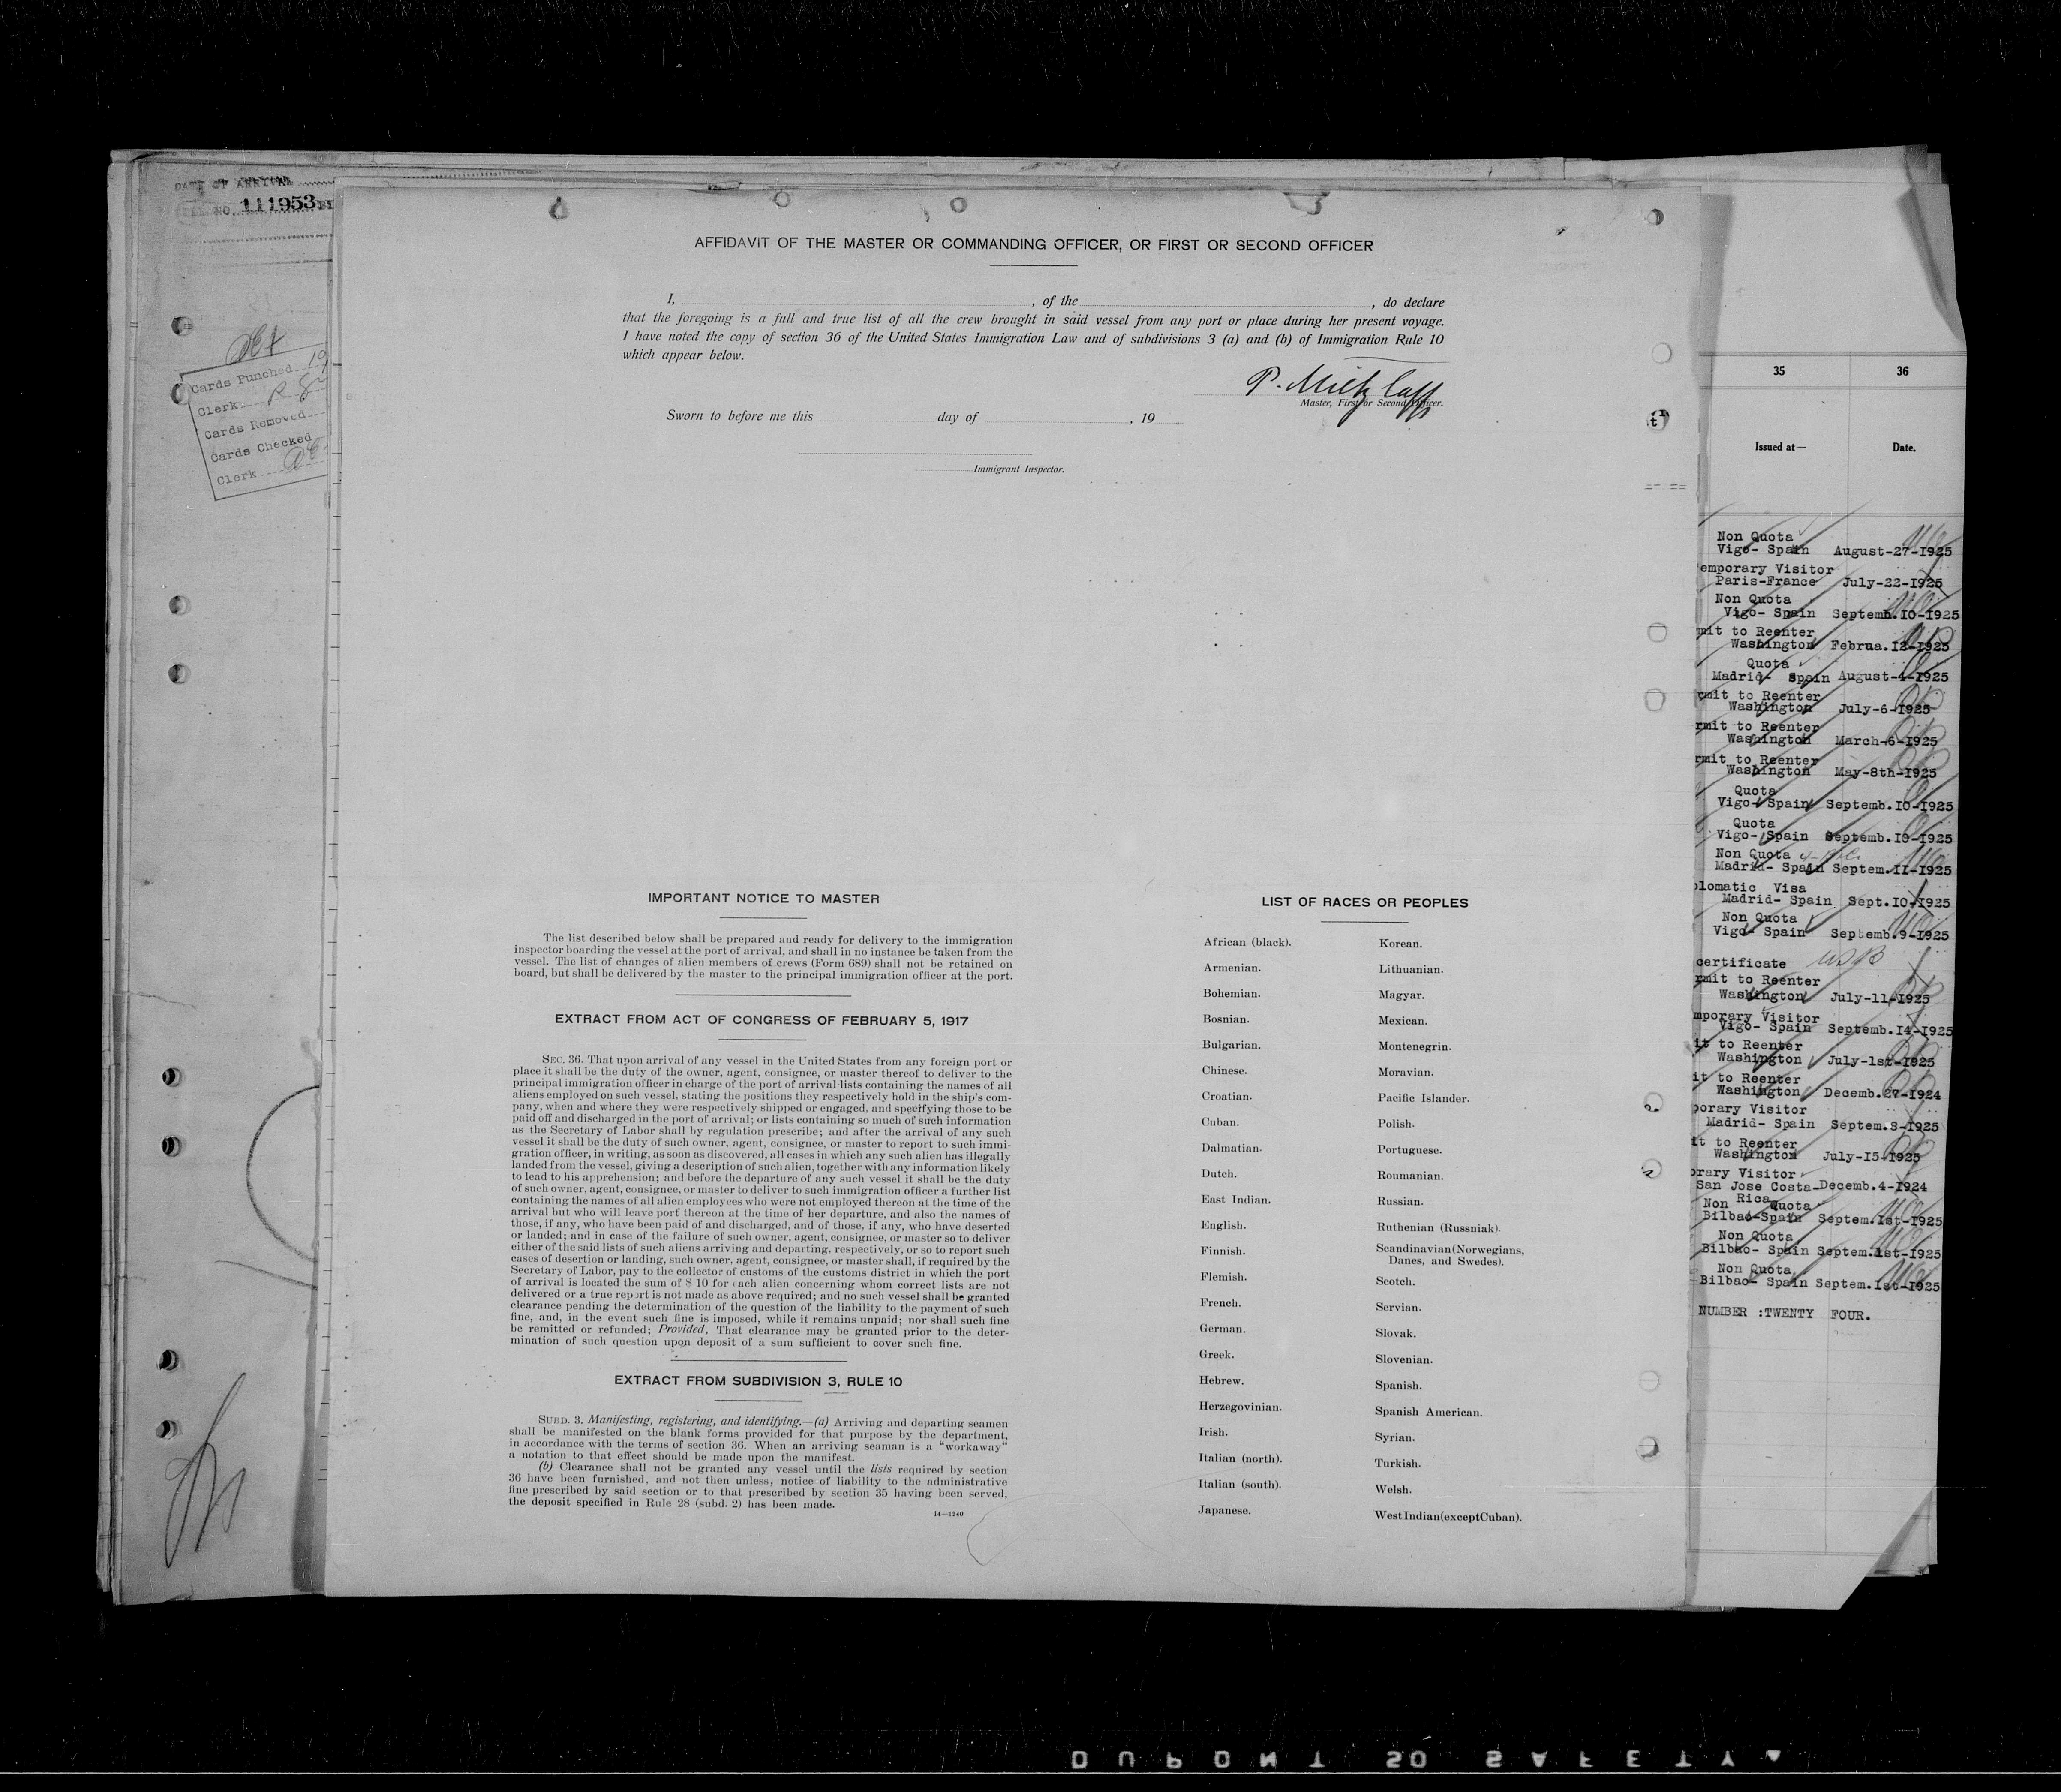 DATE OF ARRIVAL
NO. 111953
Cards Punched
Clerk
Cards Removed
Cards Checked
Clerk
AFFIDAVIT OF THE MASTER OR COMMANDING OFFICER, OR FIRST OR SECOND OFFICER
I, , of the , do declare
that the foregoing is a full and true list of all the crew brought in said vessel from any port or place during her present voyage.
I have noted the copy of section 36 of the United States Immigration Law and of subdivisions 3 (a) and (b) of Immigration Rule 10
which appear below.
P.
Master, First or Second Officer.
Sworn to before me this day of , 19
Immigrant Inspector.
IMPORTANT NOTICE TO MASTER
The list described below shall be prepared and ready for delivery to the immigration
inspector boarding the vessel at the port of arrival, and shall in no instance be taken from the
vessel. The list of changes of alien members of crews (Form 689) shall not be retained on
board, but shall be delivered by the master to the principal immigration officer at the port.
EXTRACT FROM ACT OF CONGRESS OF FEBRUARY 5, 1917
SEC. 36. That upon arrival of any vessel in the United States from any foreign port or
place it shall be the duty of the owner, agent, consignee, or master thereof to deliver to the
principal immigration officer in charge of the port of arrival lists containing the names of all
aliens employed on such vessel, stating the positions they respectively hold in the ship's com-
pany, when and where they were respectively shipped or engaged, and specifying those to be
paid off and discharged in the port of arrival; or lists containing so much of such information
as the Secretary of Labor shall by regulation prescribe; and after the arrival of any such
vessel it shall be the duty of such owner, agent, consignee, or master to report to such immi-
gration officer, in writing, as soon as discovered, all cases in which any such alien has illegally
landed from the vessel, giving a description of such alien, together with any information likely
to lead to his apprehension; and before the departure of any such vessel it shall be the duty
of such owner, agent, consignee, or master to deliver to such immigration officer a further list
containing the names of all alien employees who were not employed thereon at the time of the
arrival but who will leave port thereon at the time of her departure, and also the names of
those, if any, who have been paid of and discharged, and of those, if any, who have deserted
or landed; and in case of the failure of such owner, agent, consignee, or master so to deliver
either of the said lists of such aliens arriving and departing, respectively, or so to report such
cases of desertion or landing, such owner, agent, consignee, or master shall, if required by the
Secretary of Labor, pay to the collector of customs of the customs district in which the port
of arrival is located the sum of $ 10 for each alien concerning whom correct lists are not
delivered or a true report is not made as above required; and no such vessel shall be granted
clearance pending the determination of the question of the liability to the payment of such
fine, and, in the event such fine is imposed, while it remains unpaid; nor shall such fine
be remitted or refunded; Provided, That clearance may be granted prior to the deter-
mination of such question upon deposit of a sum sufficient to cover such fine.
EXTRACT FROM SUBDIVISION 3, RULE 10
SUBD. 3. Manifesting, registering, and identifying.—(a) Arriving and departing seamen
shall be manifested on the blank forms provided for that purpose by the department,
in accordance with the terms of section 36. When an arriving seaman is a "workaway"
a notation to that effect should be made upon the manifest.
(b) Clearance shall not be granted any vessel until the lists required by section
36 have been furnished, and not then unless, notice of liability to the administrative
fine prescribed by said section or to that prescribed by section 35 having been served,
the deposit specified in Rule 28 (subd. 2) has been made.
14—1240
LIST OF RACES OR PEOPLES
African (black).
Armenian.
Bohemian.
Bosnian.
Bulgarian.
Chinese.
Croatian.
Cuban.
Dalmatian.
Dutch.
East Indian.
English.
Finnish.
Flemish.
French.
German.
Greek.
Hebrew.
Herzegovinian.
Irish.
Italian (north).
Italian (south).
Japanese.
Korean.
Lithuanian.
Magyar.
Mexican.
Montenegrin.
Moravian.
Pacific Islander.
Polish.
Portuguese.
Roumanian.
Russian.
Ruthenian (Russniak).
Scandinavian(Norwegians,
Danes, and Swedes).
Scotch.
Servian.
Slovak.
Slovenian.
Spanish.
Spanish American.
Syrian.
Turkish.
Welsh.
West Indian (except Cuban).
35 36
Issued at— Date.
Non Quota
Vigo- Spain August-27-1925
emporary Visitor
Paris-France July-22-1925
Non Quota
Vigo- Spain Septemb.10-1925
mit to Reenter
Washington Februa.12-1925
Quota
Madrid- Spain August-4-1925
rmit to Reenter
Washington July-6-1925
rmit to Reenter
Washington March-6-1925
rmit to Reenter
Washington May-8th-1925
Quota
Vigo-Spain Septemb.10-1925
Quota
Vigo-Spain Septemb.19-1925
Non Quota
Madrid- Spain Septem.11-1925
plomatic Visa
Madrid- Spain Sept.10-1925
Non Quota
Vigo- Spain Septemb.9-1925
certificate USB
rmit to Reenter
Washington July-11-1925
mporary Visitor
Vigo- Spain Septemb.14-1925
it to Reenter
Washington July-1st-1925
it to Reenter
Washington Decemb.27-1924
porary Visitor
Madrid- Spain Septem.8-1925
it to Reenter
Washington July-15-1925
orary Visitor
San Jose Costa- Decemb.4-1924
Rica
Non Quota
Bilbao-Spain Septem.1st-1925
Non Quota
Bilbao- Spain Septem.1st-1925
Non Quota
Bilbao- Spain Septem.1st-1925
NUMBER :TWENTY FOUR.
DUPONT SO SAFETY